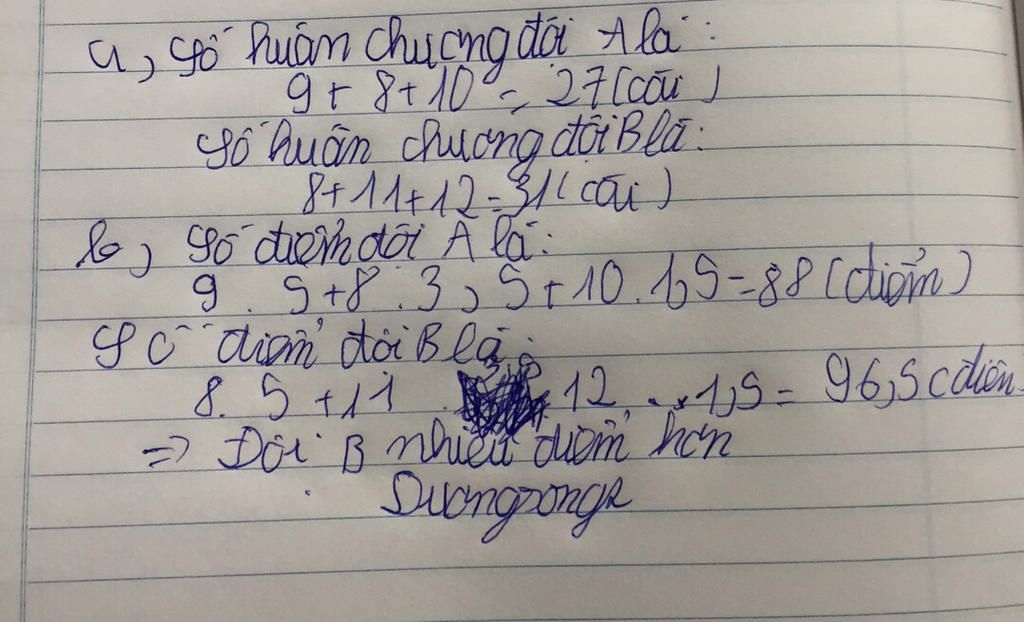 a, Số huân chương đội A là:
9 + 8 + 10 = 27 (cái)
Số huân chương đội B là:
8 + 11 + 12 = 31 (cái)
b, Số điểm đội A là:
9 . 5 + 8 . 3,5 + 10 . 1,5 = 88 (điểm)
Số điểm đội B là:
8 . 5 + 11 . 12 . 1,5 = 96,5 (điểm
=> Đội B nhiều điểm hơn